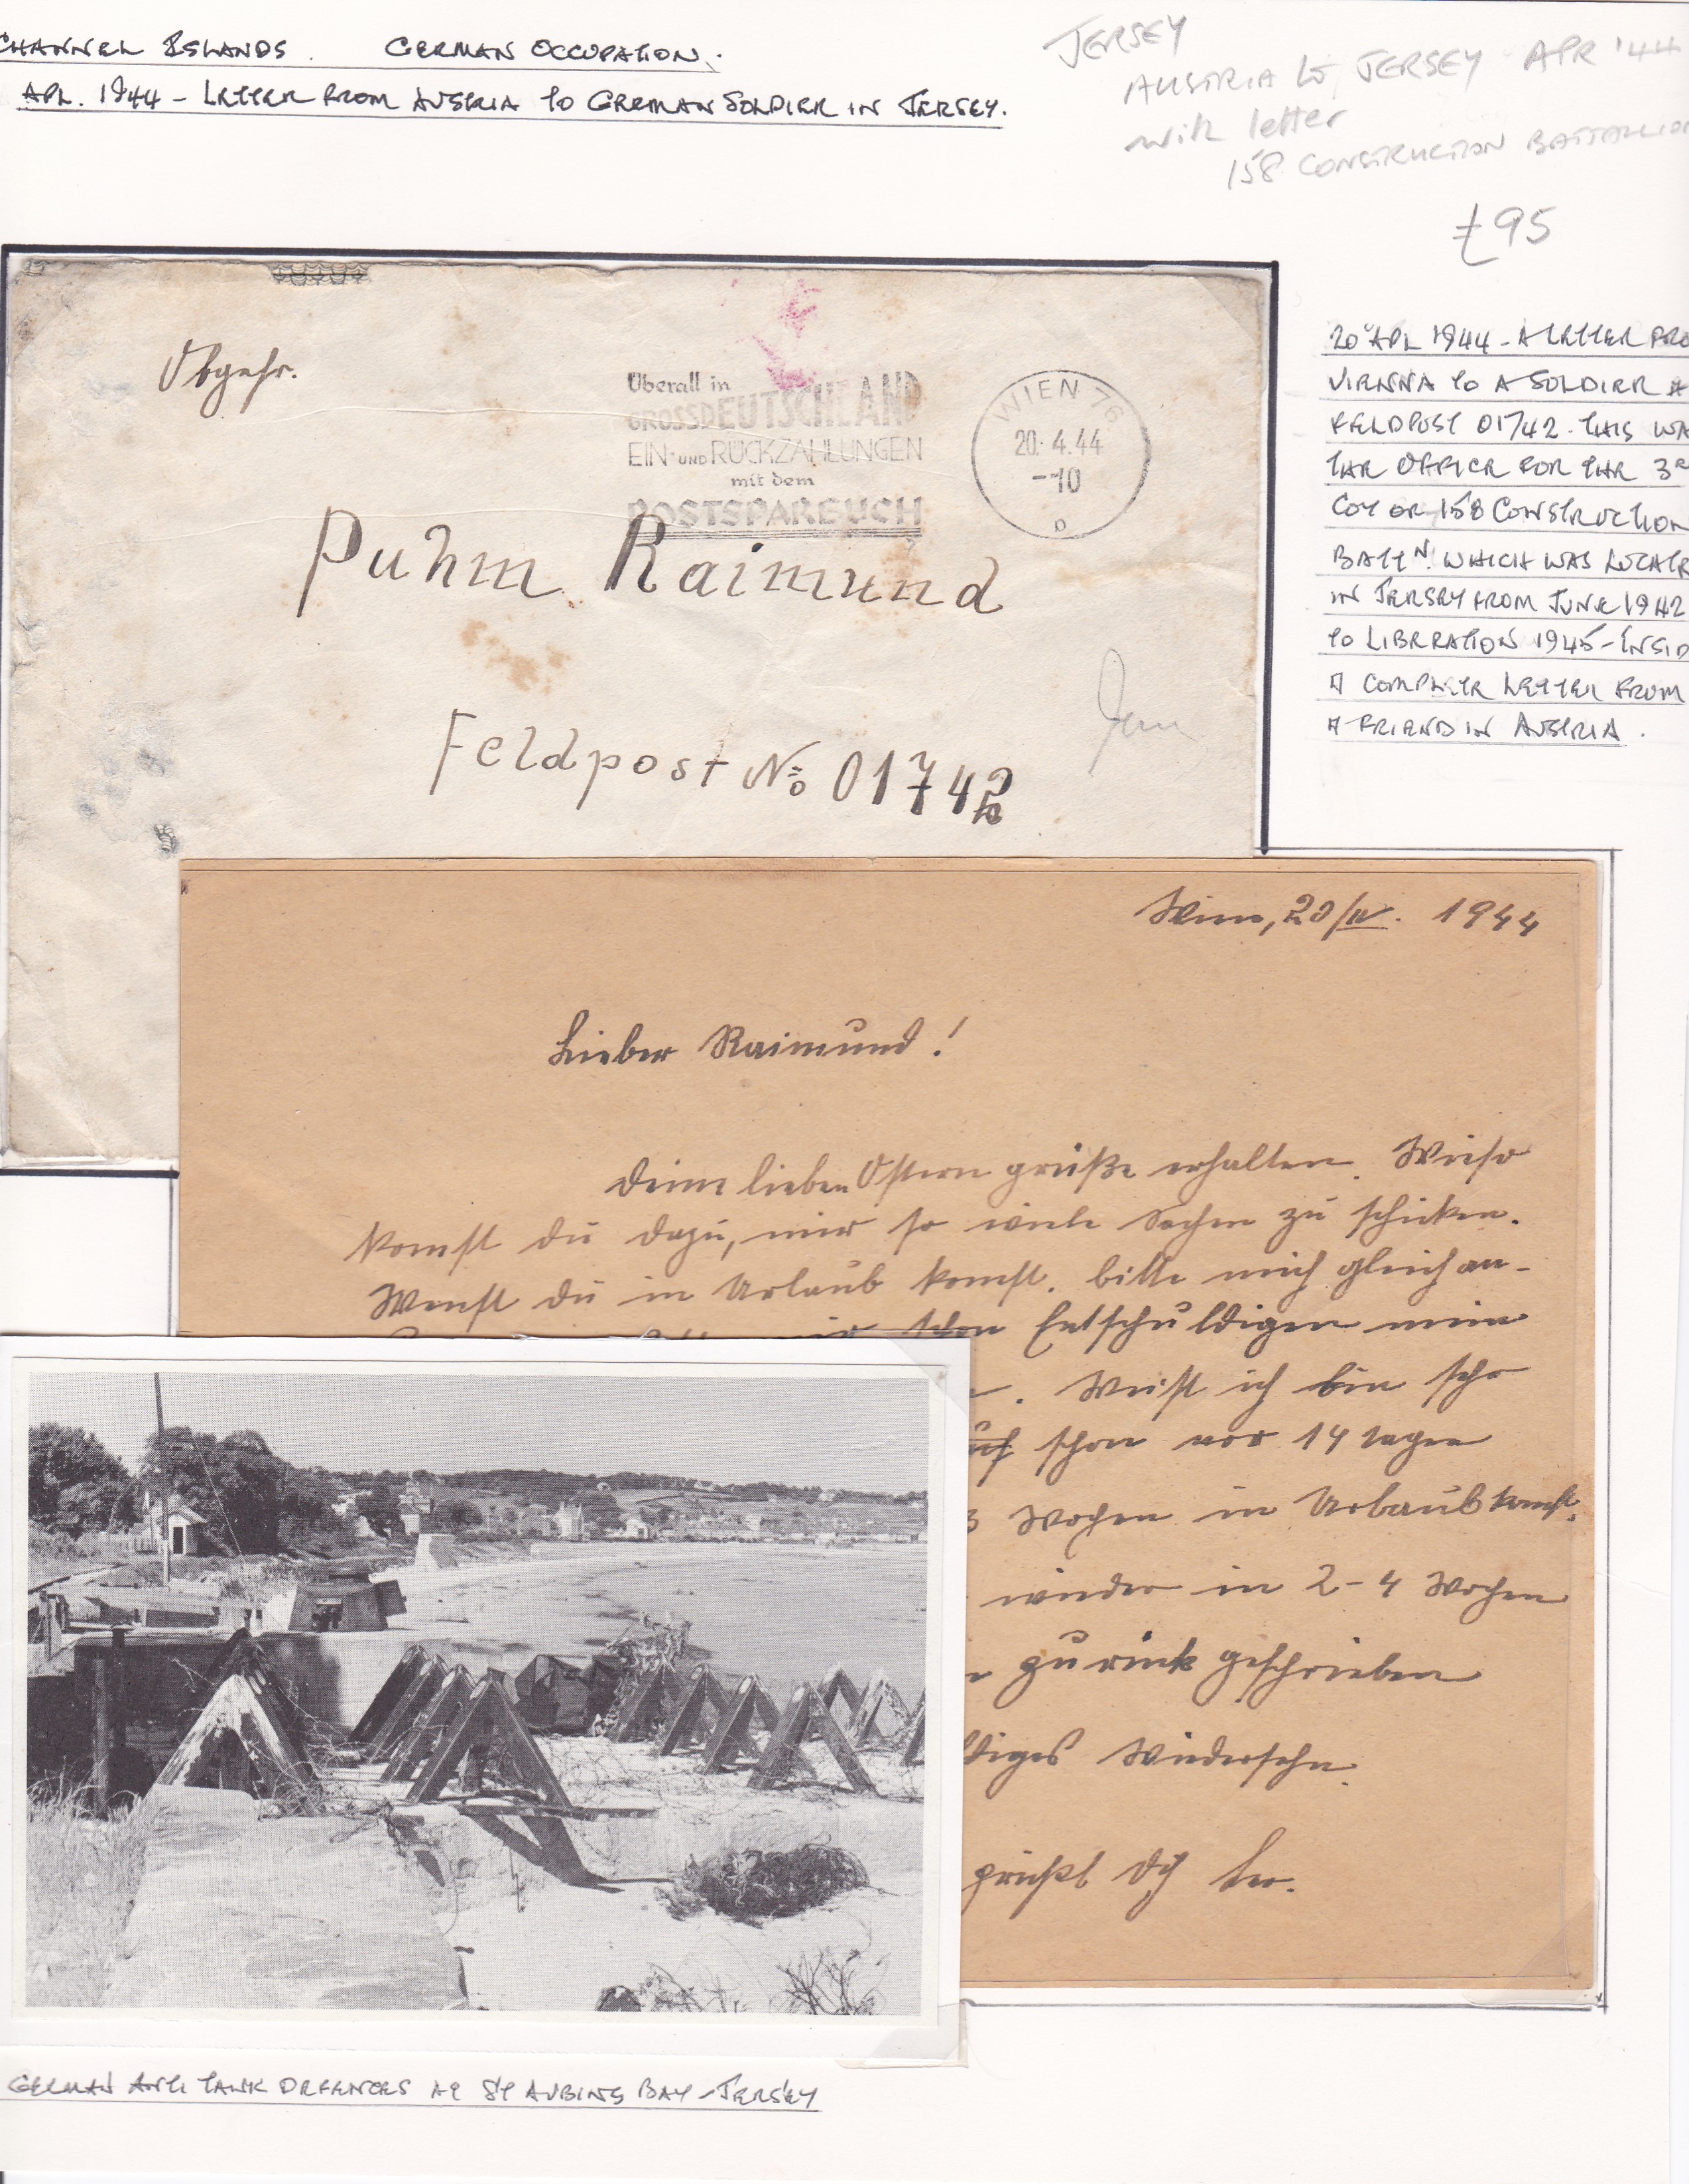 CHANNEL ISLANDS. GERMAN OCCUPATION.
APL. 1944 - LETTER FROM AUSTRIA TO GERMAN SOLDIER IN JERSEY.
JERSEY
AUSTRIA to JERSEY APR '44
with letter
158 CONSTRUCTION BATTALION
£95
20 APL 1944 - A LETTER FRO
VIENNA TO A SOLDIER A
FELDPOST 01742. THIS WA
THE OFFICE FOR THE 3R
COY OF 158 CONSTRUCTION
BATTN. WHICH WAS LOCATE
IN JERSEY FROM JUNE 1942
TO LIBERATION 1945 - INSID
A COMPLETE LETTER FROM
A FRIEND IN AUSTRIA.
Obgefr.
Überall in
GROSSDEUTSCHLAND
EIN- UND RÜCKZAHLUNGEN
mit dem
POSTSPARBUCH
WIEN 76
20.4.44
-10
Puhm Raimund
Feldpost No 01742
Wien, 20/IV. 1944
Lieber Raimund!
Deine lieben Ostern grüße erhalten. Wieso
komst du dazu, mir so viele Sachen zu schicken.
Wenst du in Urlaub komst. bitte mich gleich an-
schon Entschuldigen mein
. Weist ich bin sehr
schon vor 14 tagen
3 Wochen in Urlaub komst.
wieder in 2-4 Wochen
zurück geschrieben
ldiges Wiedersehn.
grüßt Dich Leo.
GERMAN ANTI TANK DEFENCES AT ST AUBINS BAY - JERSEY